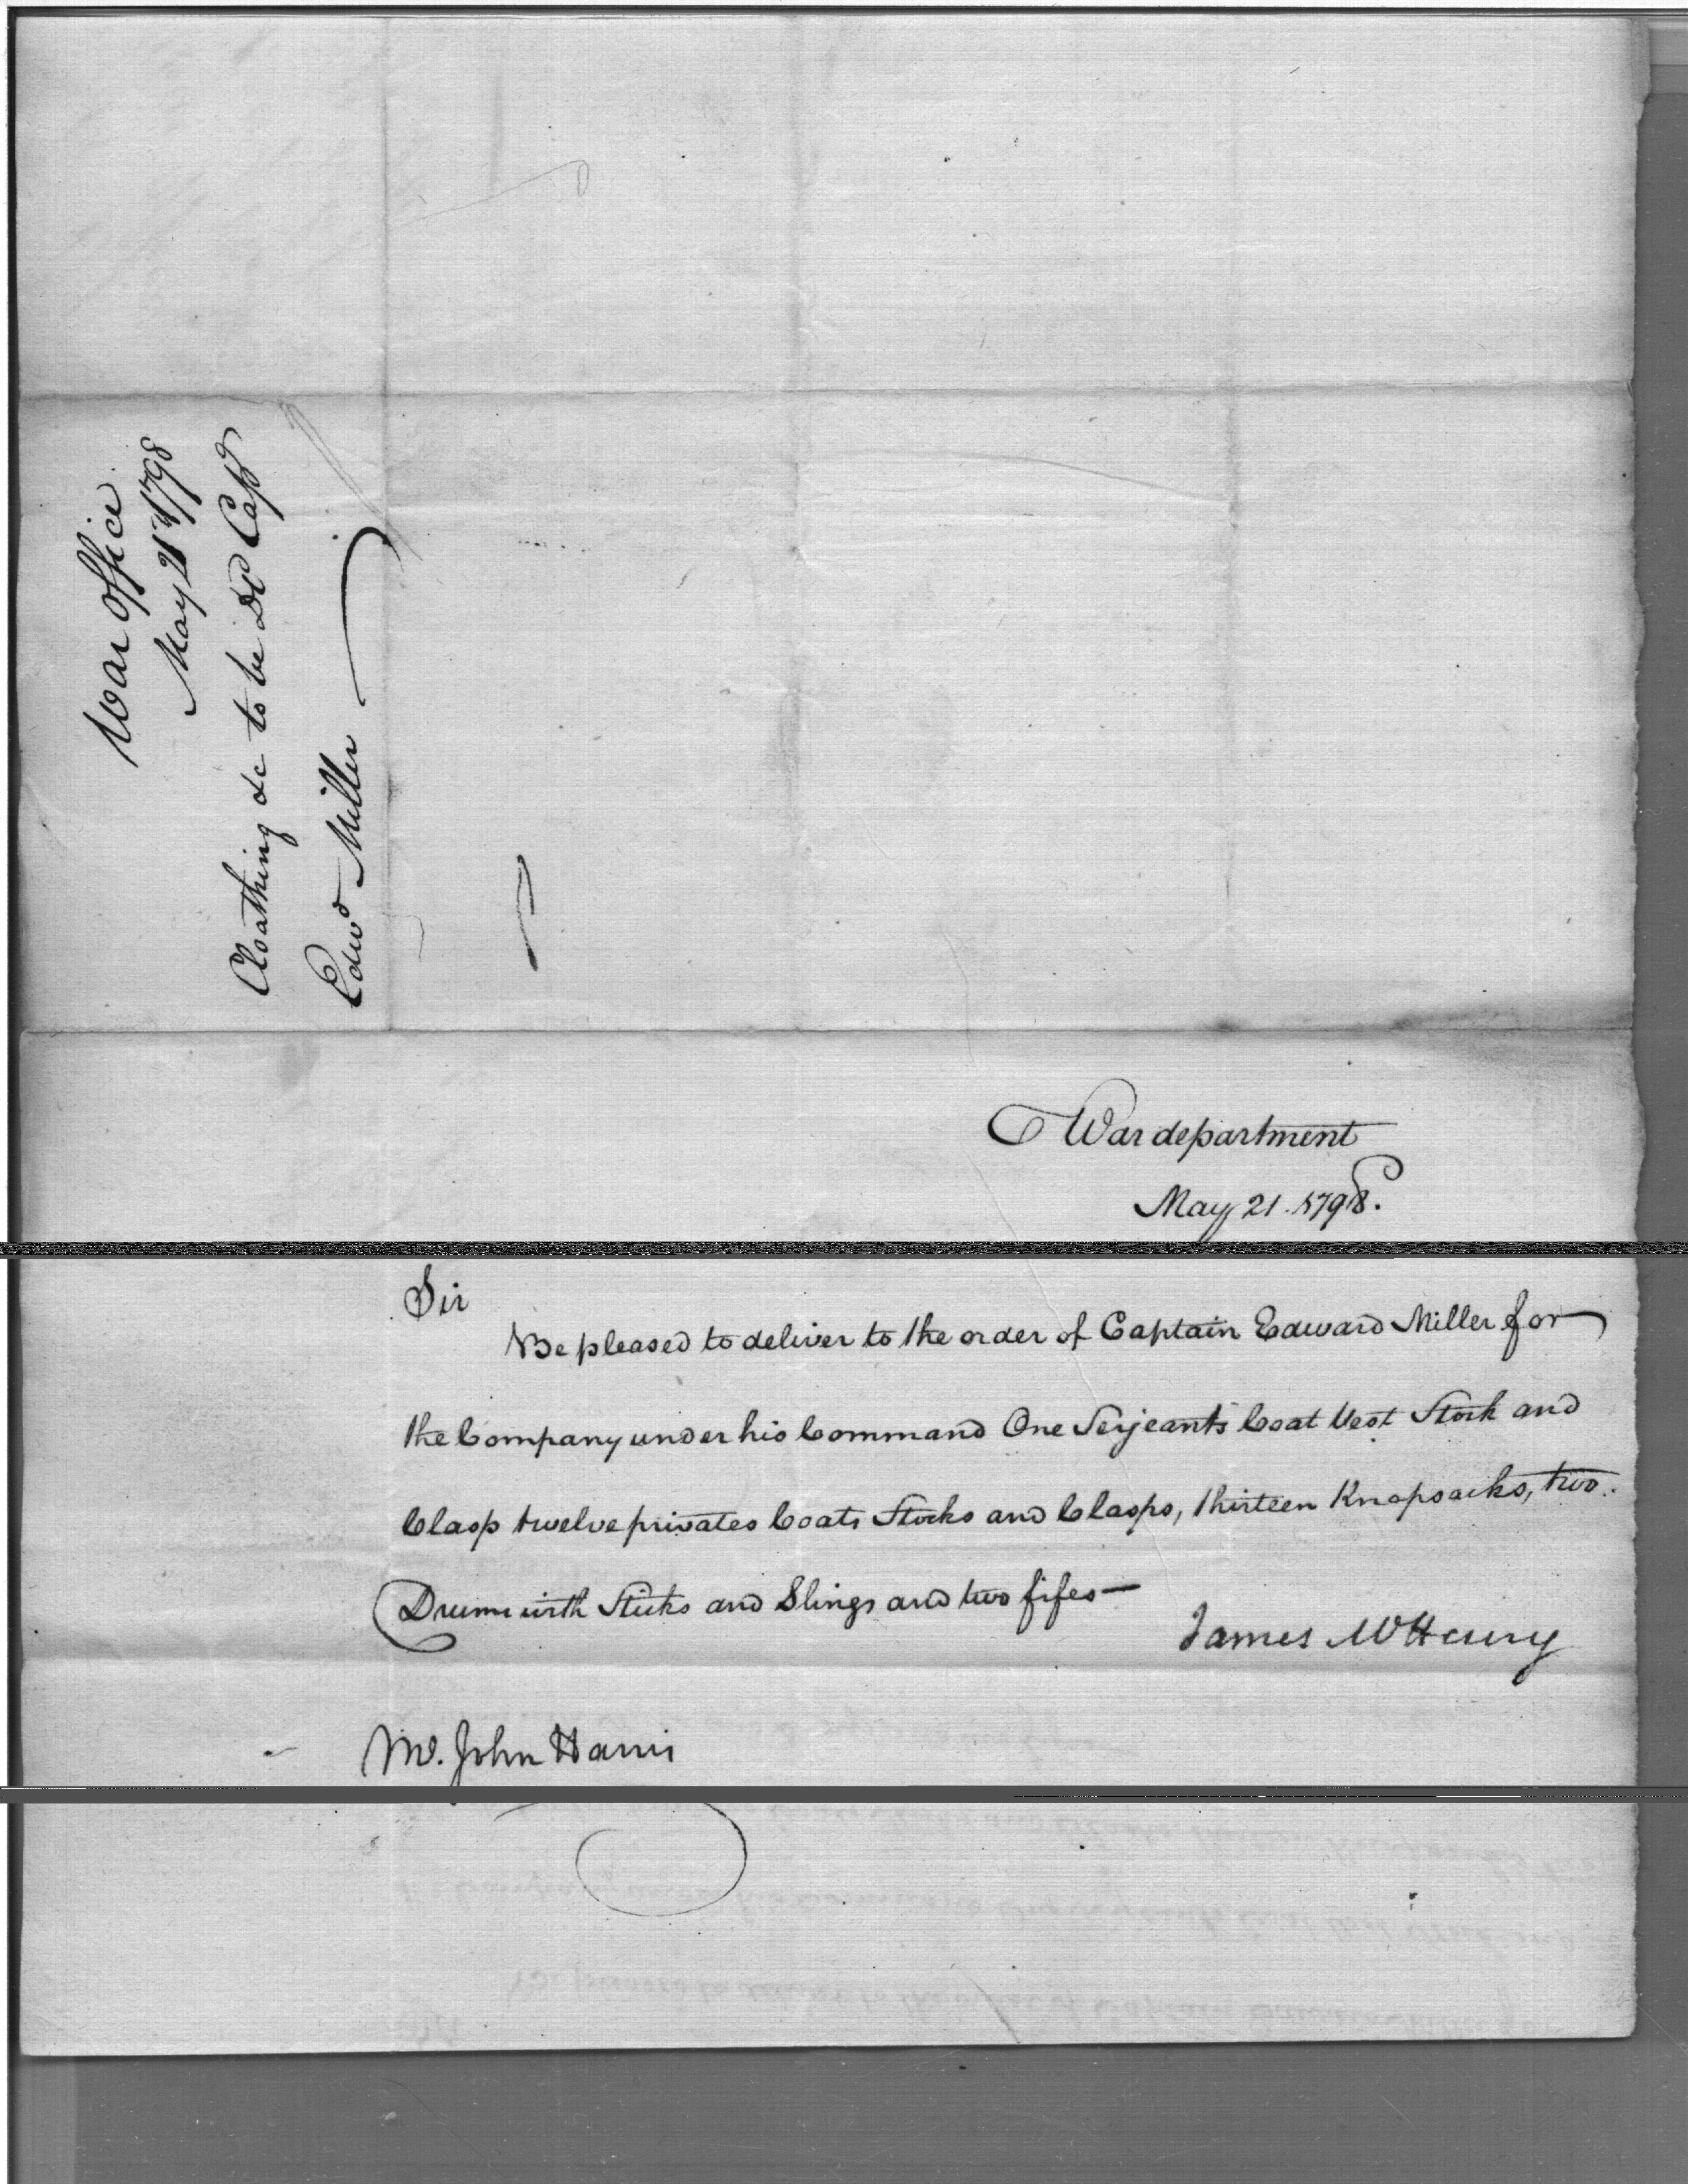 War Office
May 21st 1798
Cloathing &c to be DD Capt
Edwd Miller
War department
May 21. 1798.
Sir
Be pleased to deliver to the order of Captain Edward Miller for
the Company under his Command One Serjeants Coat Vest Stock and
Clasp twelve privates Coats Stocks and Clasps, thirteen Knapsacks, two
Drums with Sticks and Slings and two fifes—
James McHenry
Mr. John Harris